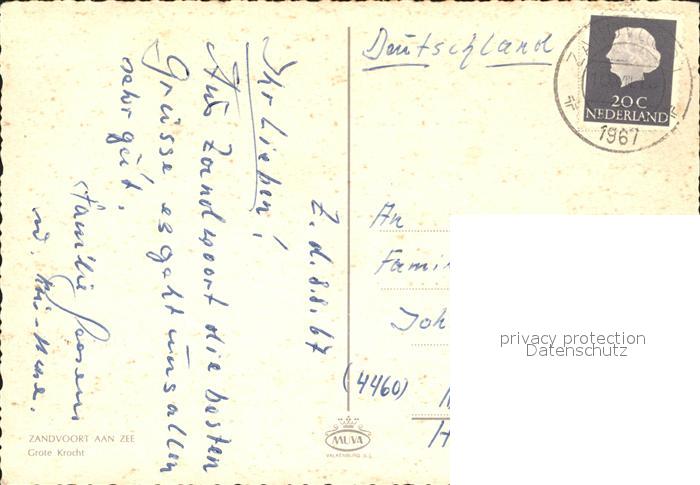 Deutschland
20 C
NEDERLAND
1967
Z. d. 8.8.67
Ihr Lieben!
Aus Zandvoort die besten
Grüsse es geht uns allen
sehr gut.
Familie
An
Fami
Joh
(4460)
H
privacy protection
Datenschutz
ZANDVOORT AAN ZEE
Grote Krocht
MUVA
VALKENBURG Z.L.